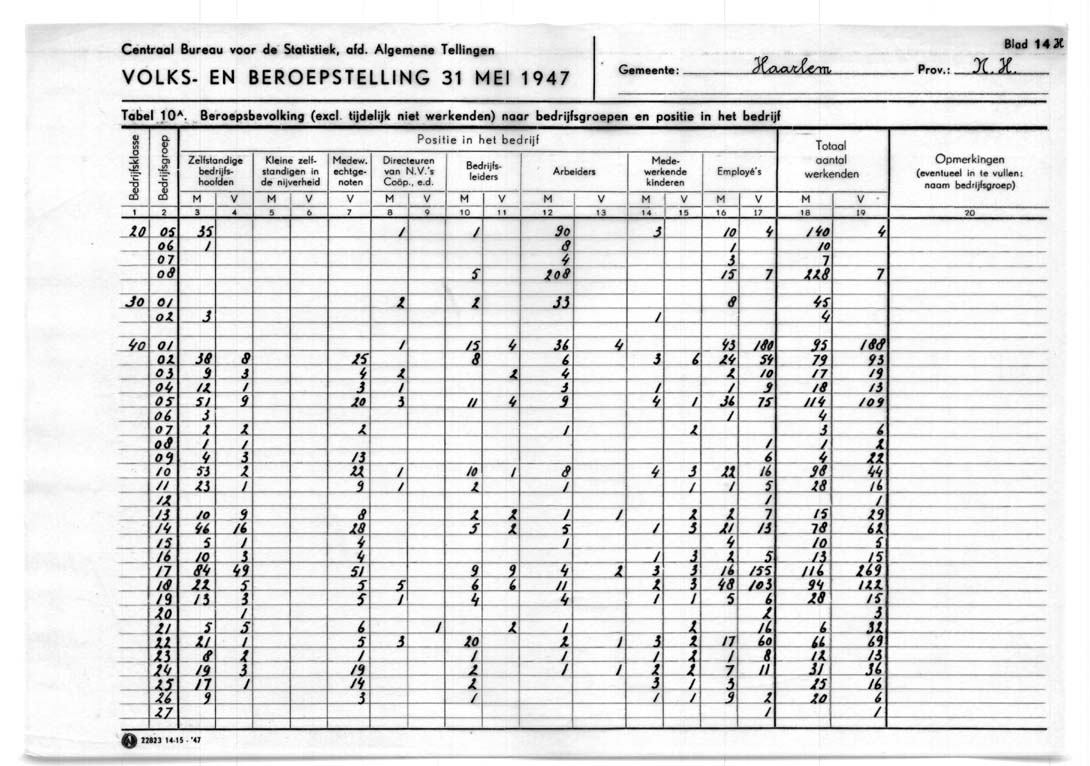 Centraal Bureau voor de Statistiek, afd. Algemene Tellingen
Blad 14 H
VOLKS- EN BEROEPSTELLING 31 MEI 1947
Gemeente: Haarlem Prov.: N.H.
Tabel 10A. Beroepsbevolking (excl. tijdelijk niet werkenden) naar bedrijfsgroepen en positie in het bedrijf
Bedrijfsklasse
Bedrijfsgroep
Positie in het bedrijf
Zelfstandige bedrijfs-hoofden
Kleine zelf-standigen in de nijverheid
Medew. echtge-noten
Directeuren van N.V.'s Coöp., e.d.
Bedrijfs-leiders
Arbeiders
Mede-werkende kinderen
Employé's
Totaal aantal werkenden
Opmerkingen (eventueel in te vullen: naam bedrijfsgroep)
M V M V V M V M V M V M V M V M V
1 2 3 4 5 6 7 8 9 10 11 12 13 14 15 16 17 18 19 20
20 05 35 1 1 90 3 10 4 140 4
06 1 8 1 10
07 4 3 7
08 5 208 15 7 228 7
30 01 2 2 33 8 45
02 3 1 4
40 01 1 15 4 36 4 43 180 95 188
02 38 8 25 8 6 3 6 24 54 79 93
03 9 3 4 2 2 4 2 10 17 19
04 12 1 3 1 3 1 1 9 18 13
05 51 9 20 3 11 4 9 4 1 36 75 114 109
06 3 1 4
07 2 2 2 1 2 3 6
08 1 1 1 1 2
09 4 3 13 6 4 22
10 53 2 22 1 10 1 8 4 3 22 16 98 44
11 23 1 9 1 2 1 1 1 5 28 16
12 1 1
13 10 9 8 2 2 1 1 2 2 7 15 29
14 46 16 28 5 2 5 1 3 21 13 78 62
15 5 1 4 1 4 10 5
16 10 3 4 1 3 2 5 13 15
17 84 49 51 9 9 4 2 3 3 16 155 116 269
18 22 5 5 5 6 6 11 2 3 48 103 94 122
19 13 3 5 1 4 4 1 1 5 6 28 15
20 1 2 3
21 5 5 6 1 2 1 2 16 6 32
22 21 1 5 3 20 2 1 3 2 17 60 66 69
23 8 2 1 1 1 1 2 1 8 12 13
24 19 3 19 2 1 1 2 2 7 11 31 36
25 17 1 14 2 3 1 3 25 16
26 9 3 1 1 1 9 2 20 6
27 1 1
22823 14-15 - '47